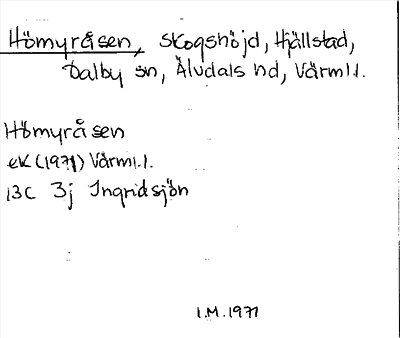 Hömyråsen, Skogshöjd, Hjällstad,
Dalby sn, Älvdals hd, Värml.l.
Hömyråsen
eK (1971) Värml.l.
13C 3j Ingridsjön
I.M. 1971